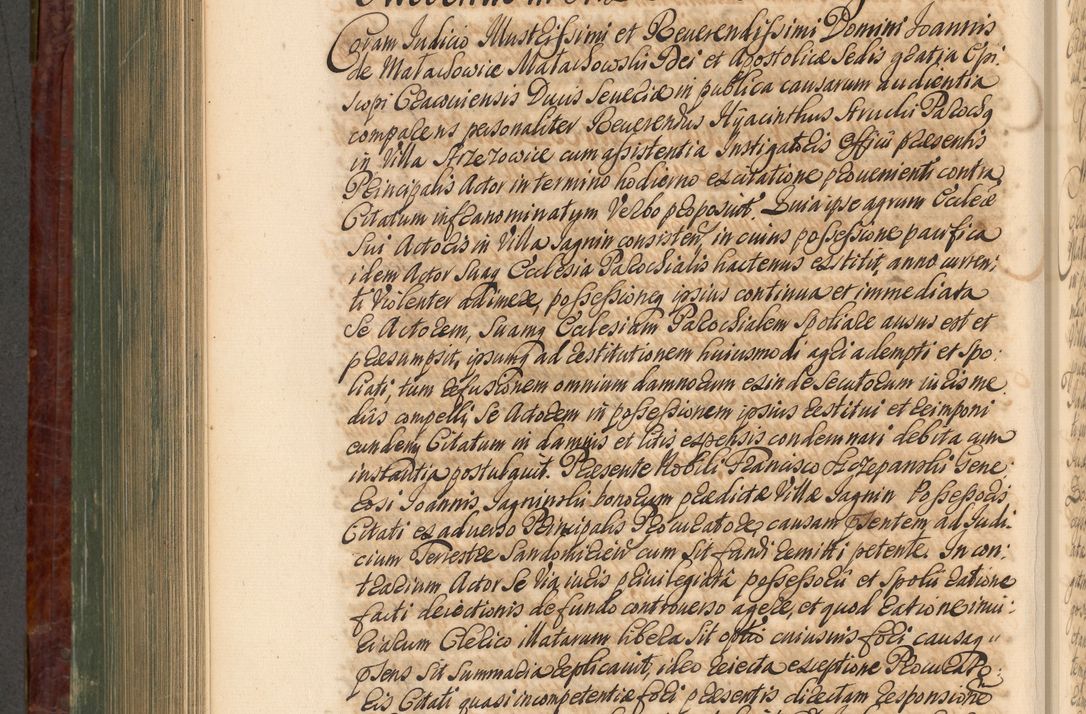 Coram Judicio Illustrissimi et Reverendissimi Domini Joannis
de Małachowice Małachowski Dei et Apostolicæ Sedis gratia Epi
scopi Cracoviensis Ducis Severiæ in publica causarum audientia
comparens personaliter Reverendus Hyacinthus Parochq
in Villa Strzezowice cum assistentia Instigatoris Officii præsentis
Principalis Actor in termino hodierno ex citatione provenienti contra
Citatum infranominatum Verbo proposuit. Quia ipse agrum Ecclæ
Sui Actoris in Villa Jagnin consisten, in cuius possessione pacifica
idem Actor Suaq Ecclesia Parochialis hactenus extitit, anno curren:
ti Violenter adimere, possessioneq ipsius continua et immediata
Se Actorem, Suamq Ecclesiam Parochialem Spoliare ausus est et
præsumpsit, ipsumq ad restitutionem huiusmodi agri adempti et Spo:
liati, tum refusionem omnium damnorum exinde Secutorum iuris me
diis compelli, Se Actorem in possessionem ipsius restitui et reimponi
eundemq Citatum in damnis et litis expensis condemnari debita cum
instantia postulavit. Præsente Nobili Francisco Szczepanski Gene
rosi Joannis Jagninski bonorum prædictæ Villæ Jagnin Possessoris
Citati ex adverso Principalis Procuratore, causam psentem ad Judi:
cium Terrestre Sandomirien cum Sit fundi remitti petente. In con:
trarium Actor Se via iuris privilegiati possessorii et Spolii ratione
facti deiectionis de fundo controverso agere, et quod ratione iniu:
riarum Clerico illatarum libera Sit optio cuiusvis fori causaq
psens Sit Summaria replicavit, ideo reiecta exceptione Procurato
ris Citati quasi incompetentiæ fori præsentis directam responsione